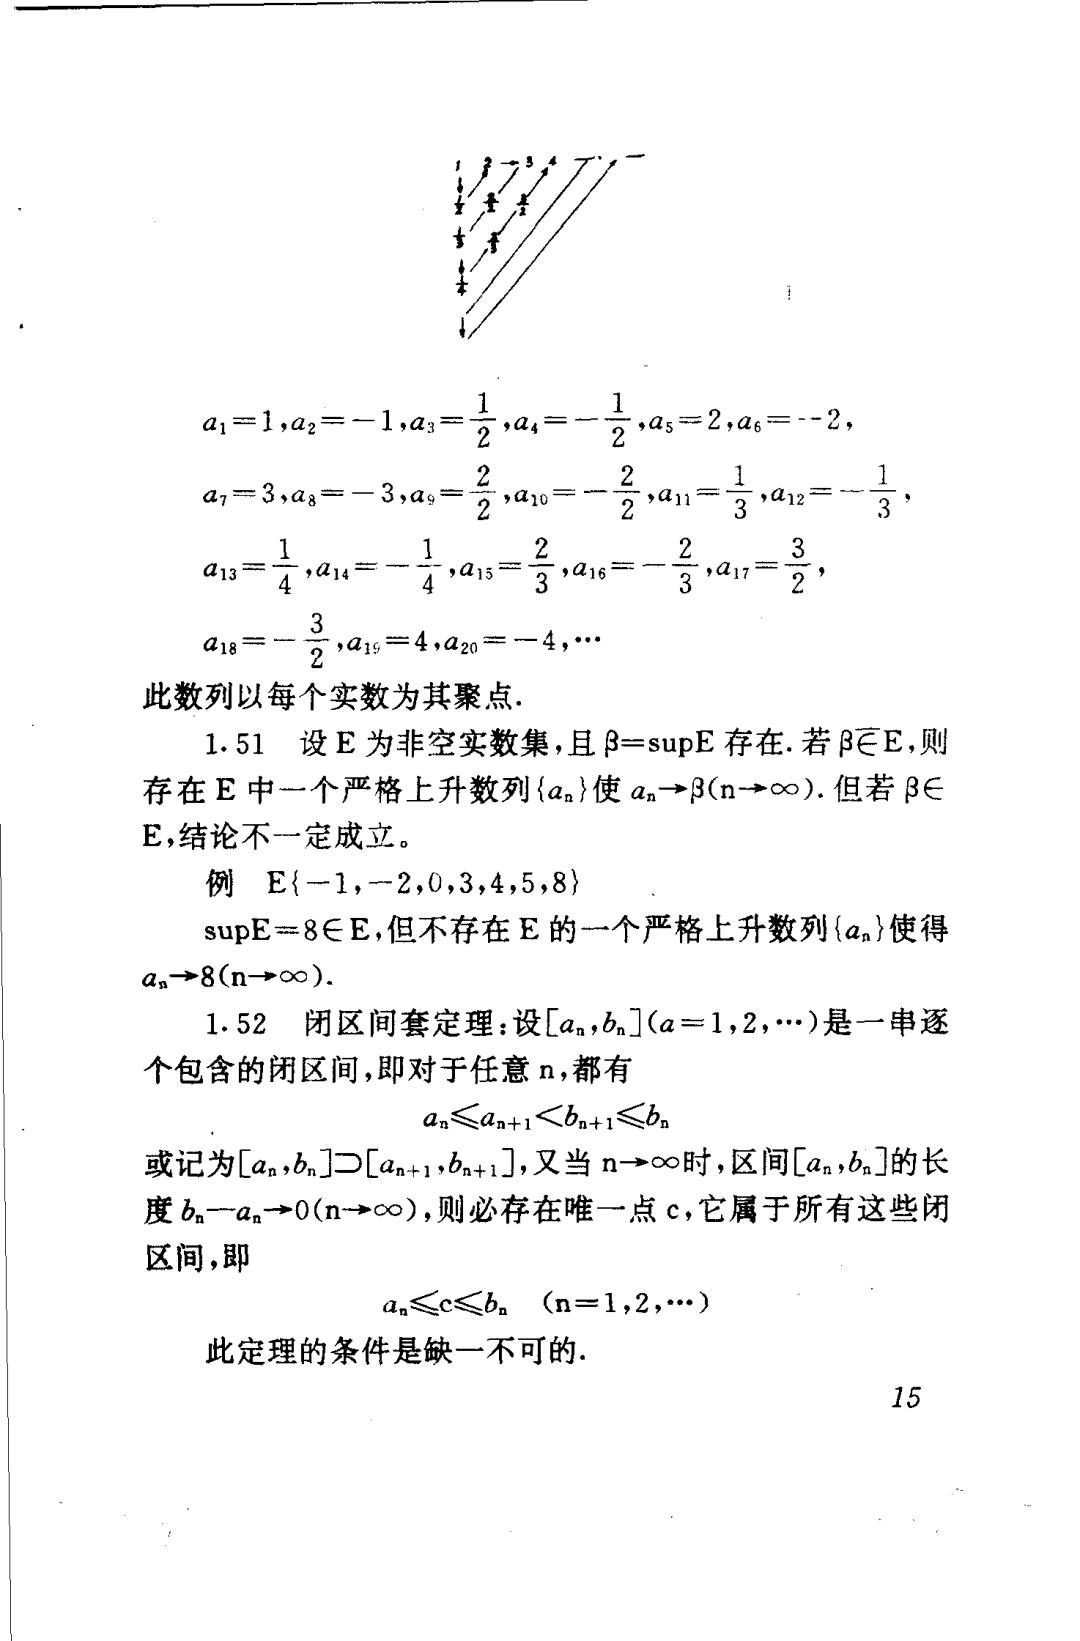 1 2 3 4
1/2 2/2 3/2
1/3 2/3
1/4
a₁=1,a₂=−1,a₃=1/2,a₄=−1/2,a₅=2,a₆=--2,
a₇=3,a₈=−3,a₉=2/2,a₁₀=−2/2,a₁₁=1/3,a₁₂=−1/3,
a₁₃=1/4,a₁₄=−1/4,a₁₅=2/3,a₁₆=−2/3,a₁₇=3/2,
a₁₈=−3/2,a₁₉=4,a₂₀=−4,…
此数列以每个实数为其聚点.
1.51 设 E 为非空实数集,且 β=supE 存在.若 β∈̅E,则
存在 E 中一个严格上升数列{aₙ}使 aₙ→β(n→∞).但若 β∈
E,结论不一定成立。
例 E{−1,−2,0,3,4,5,8}
supE=8∈E,但不存在 E 的一个严格上升数列{aₙ}使得
aₙ→8(n→∞).
1.52 闭区间套定理:设[aₙ,bₙ](a=1,2,…)是一串逐
个包含的闭区间,即对于任意 n,都有
aₙ≤aₙ₊₁<bₙ₊₁≤bₙ
或记为[aₙ,bₙ]⊃[aₙ₊₁,bₙ₊₁],又当 n→∞时,区间[aₙ,bₙ]的长
度 bₙ—aₙ→0(n→∞),则必存在唯一点 c,它属于所有这些闭
区间,即
aₙ≤c≤bₙ (n=1,2,…)
此定理的条件是缺一不可的.
15